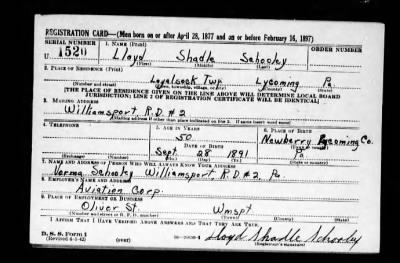 REGISTRATION CARD—(Men born on or after April 28, 1877 and on or before February 16, 1897)
SERIAL NUMBER
1. NAME (Print)
ORDER NUMBER
U 1520
Lloyd Shadle Schooley
(First) (Middle) (Last)
2. PLACE OF RESIDENCE (Print)
Loyalsock Twp. Lycoming Pa.
(Number and street) (Town, township, village, or city) (County) (State)
[THE PLACE OF RESIDENCE GIVEN ON THE LINE ABOVE WILL DETERMINE LOCAL BOARD
JURISDICTION; LINE 2 OF REGISTRATION CERTIFICATE WILL BE IDENTICAL]
3. MAILING ADDRESS
Williamsport R.D.#2
[Mailing address if other than place indicated on line 2. If same insert word same]
4. TELEPHONE
5. AGE IN YEARS
6. PLACE OF BIRTH
50
Newberry Lycoming Co.
DATE OF BIRTH
(Town or county)
Sept. 28 1891
Pa
(Exchange) (Number)
(Mo.) (Day) (Yr.)
(State or country)
7. NAME AND ADDRESS OF PERSON WHO WILL ALWAYS KNOW YOUR ADDRESS
Verma Schooley Williamsport R.D.#2 Pa.
8. EMPLOYER'S NAME AND ADDRESS
Aviation Corp.
9. PLACE OF EMPLOYMENT OR BUSINESS
Oliver St. Wmspt.
(Number and street or R. F. D. number) (Town) (County) (State)
I AFFIRM THAT I HAVE VERIFIED ABOVE ANSWERS AND THAT THEY ARE TRUE.
D. S. S. Form 1
(Revised 4-1-42) (over)
Lloyd Shadle Schooley
(Registrant's signature)